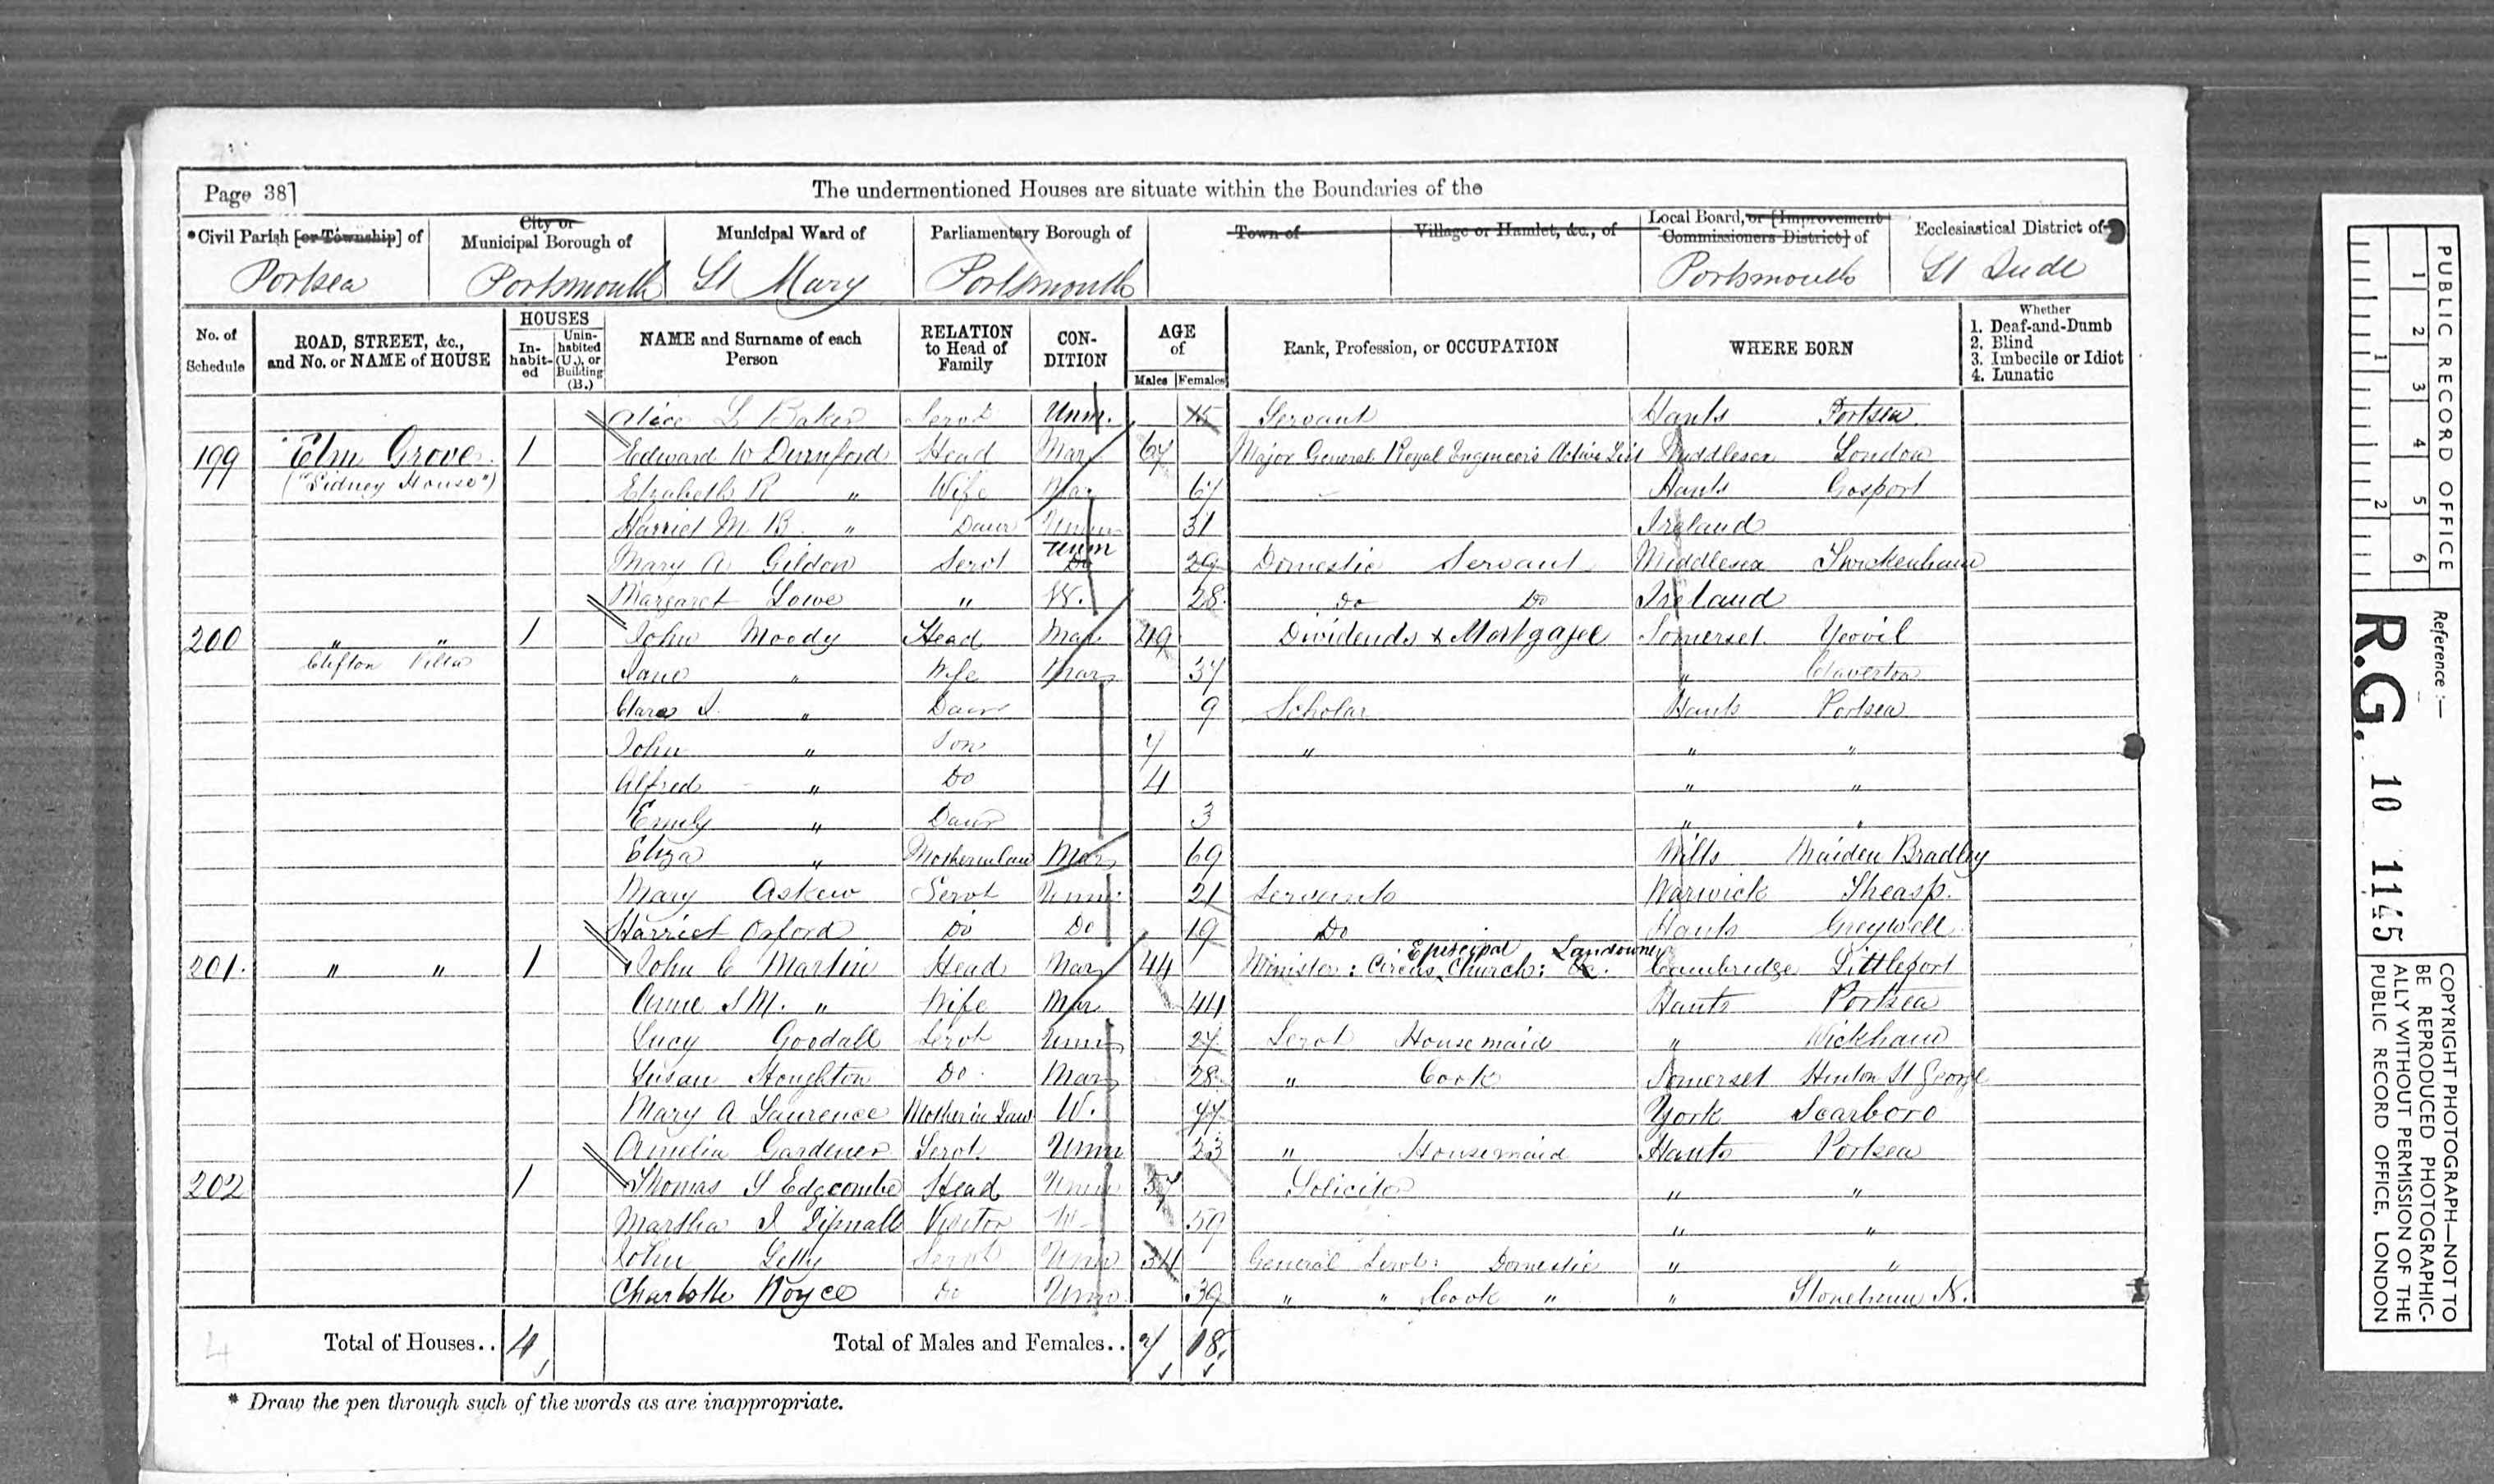 Page 38]
The undermentioned Houses are situate within the Boundaries of the
*Civil Parish [or Township] of
City or Municipal Borough of
Municipal Ward of
Parliamentary Borough of
Town of
Village or Hamlet, &c., of
Local Board, or [Improvement Commissioners District] of
Ecclesiastical District of
Portsea Portsmouth St Mary Portsmouth Portsmouth St Jude
No. of Schedule
ROAD, STREET, &c., and No. or NAME of HOUSE
HOUSES
Inhabited
Uninhabited (U.), or Building (B.)
NAME and Surname of each Person
RELATION to Head of Family
CONDITION
AGE of
Males Females
Rank, Profession, or OCCUPATION
WHERE BORN
Whether
1. Deaf-and-Dumb
2. Blind
3. Imbecile or Idiot
4. Lunatic
Alice L Baker Servt Unm. 15 Servant Hants Portsea
199 Elm Grove 1 Edward W Durnford Head Mar 67 Major General Royal Engineers Active List Middlesex London
("Sidney House") Elizabeth R " Wife Mar 67 Hants Gosport
Harriet M B " Daur Unm 31 Ireland
Mary A Gilden Servt Unm Do 29 Domestic Servant Middlesex Twickenham
Margaret Lowe " W. 28 Do Do Ireland
200 " " 1 John Moody Head Mar 49 Dividends & Mortgages Somerset Yeovil
Clifton Villa Jane " Wife Mar 37 " Claverton
Clara J. " Daur 9 Scholar Hants Portsea
John " Son 7 " " "
Alfred " Do 4 " "
Emily " Daur 3 " "
Eliza " Motherinlaw Mar 69 Wilts Maiden Bradley
Mary Askew Servt Unm 21 Servants Warwick
Harriet Oxford Do Do 19 Do Hants Greywell
201. " " 1 John C Martin Head Mar 44 Minister: Circus Episcopal Church: Landowner Cambridge Littleport
Anne S M. " Wife Mar 44 Hants Portsea
Lucy Goodall Servt Unm 27 Servt Housemaid " Wickham
Susan Houghton Do. Mar 28 " Cook Somerset Hinton St George
Mary A Laurence Mother in Law W. 77 York Scarboro
Amelia Gardener Servt Unm 23 " Housemaid Hants Portsea
202 1 Thomas S Edgcombe Head Unm 37 Solicitor " "
Martha J Visitor W 59 " "
John Servt Unm 34 General Servt: Domestic " "
Charlotte Royce Do Unm 39 " " Cook " " Stoneham N.
Total of Houses.. 4
Total of Males and Females.. 7 18
4
* Draw the pen through such of the words as are inappropriate.
PUBLIC RECORD OFFICE
1 2 3 4 5 6
1 2
Reference :—
R.G. 10 1145
COPYRIGHT PHOTOGRAPH—NOT TO
BE REPRODUCED PHOTOGRAPHIC-
ALLY WITHOUT PERMISSION OF THE
PUBLIC RECORD OFFICE, LONDON